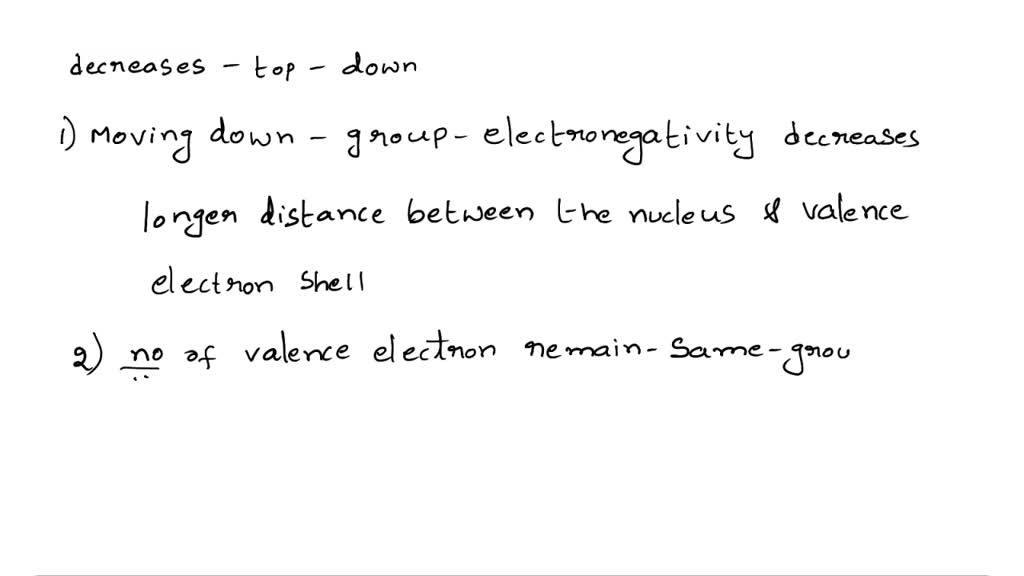 decreases - top - down
1) Moving down - group - electronegativity decreases
longer distance between the nucleus & valence
electron shell
2) no of valence electron remain - same - grou